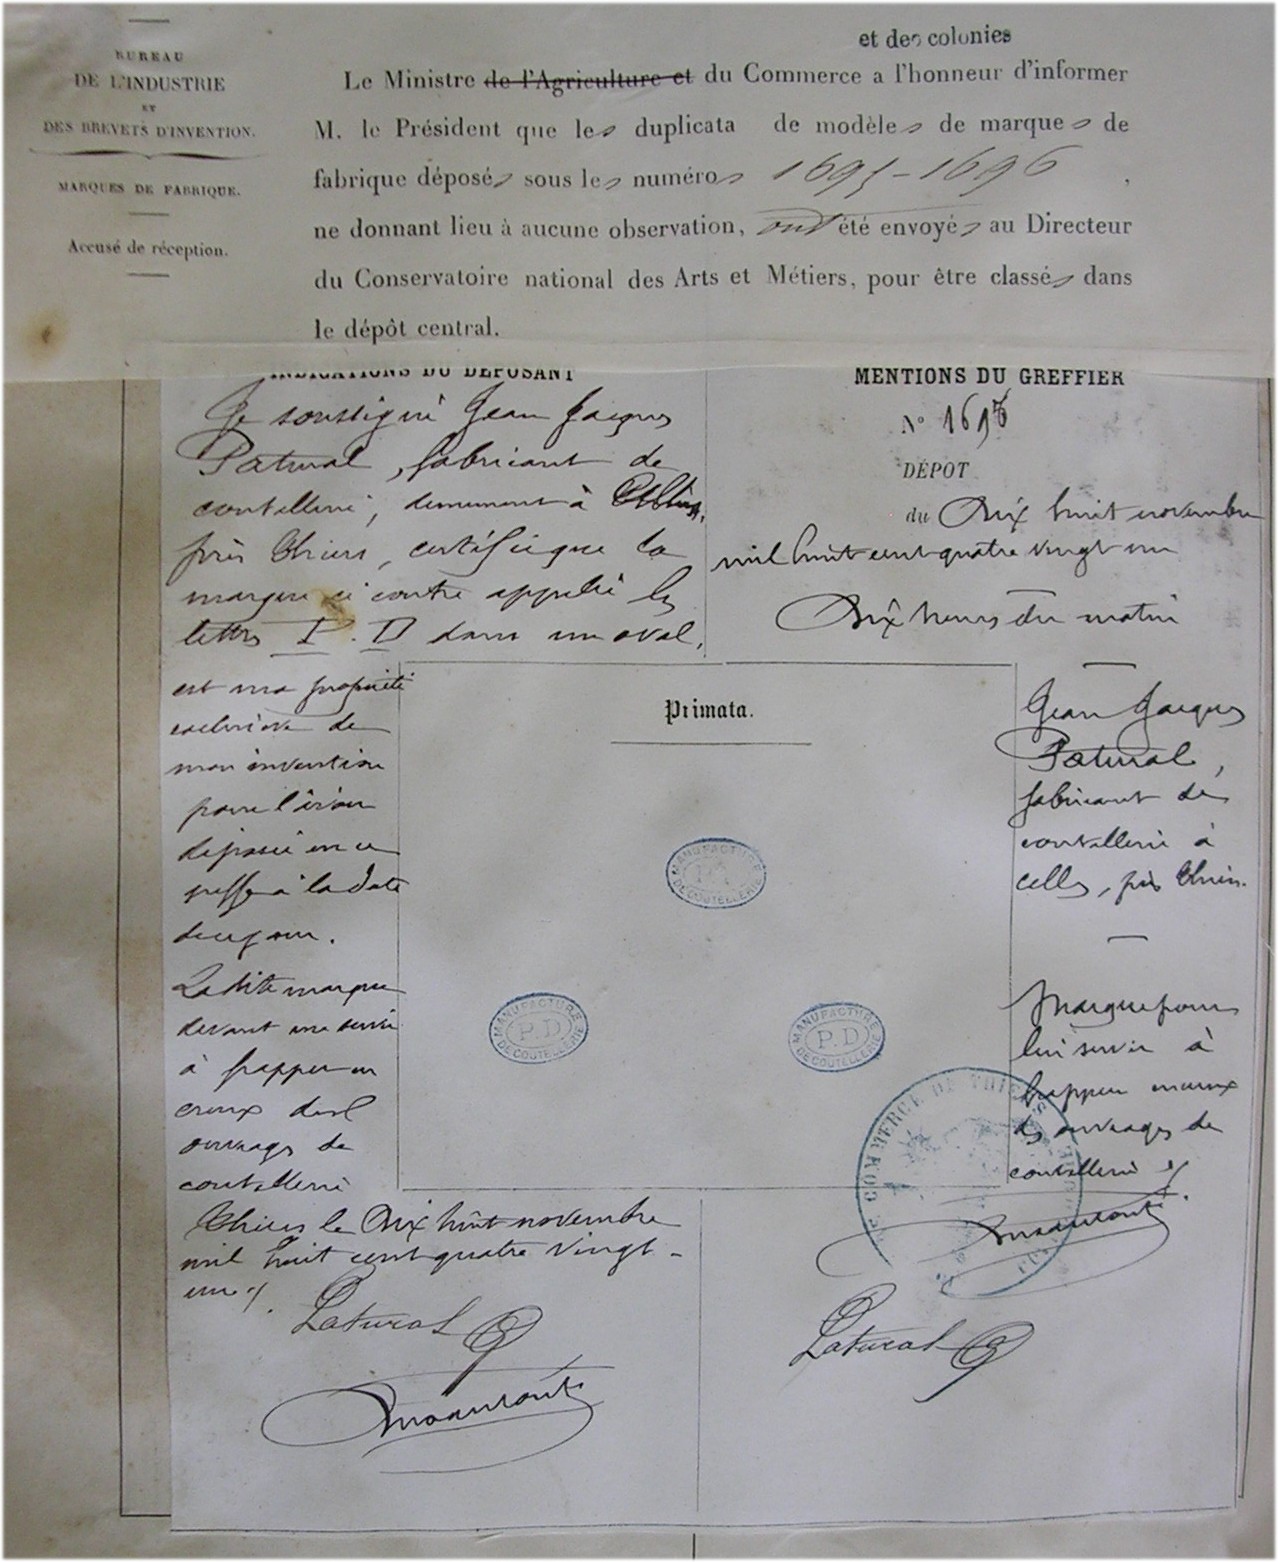 BUREAU
DE L'INDUSTRIE
ET
DES BREVETS D'INVENTION.
MARQUES DE FABRIQUE.
Accusé de réception.
et des colonies
Le Ministre de l'Agriculture et du Commerce a l'honneur d'informer
M. le Président que les duplicata de modèles de marques de
fabrique déposés sous les numéros 1695-1696,
ne donnant lieu à aucune observation, ont été envoyés au Directeur
du Conservatoire national des Arts et Métiers, pour être classés dans
le dépôt central.
INDICATIONS DU DÉPOSANT
Je soussigné Jean Jacques
Patural, fabricant de
coutellerie, demeurant à
près Thiers, certifie que la
marque ci contre appelée les
lettres P. D dans un oval,
est ma propriété
exclusive de
mon invention
pour l'avoir
déposée en ce
greffe à la date
de ce jour.
Ladite marque
devant me servir
à frapper en
creux des
ouvrages de
coutellerie
Thiers le dix huit novembre
mil huit cent quatre vingt-
un
Patural
MENTIONS DU GREFFIER
N° 1696
DÉPOT
du dix huit novembre
mil huit cent quatre vingt un
dix heures du matin
Primata.
MANUFACTURE
DE COUTELLERIE
MANUFACTURE
P.D
DE COUTELLERIE
MANUFACTURE
P.D
DE COUTELLERIE
Jean Jacques
Patural,
fabricant de
coutellerie à
celles, près Thiers.
Marque pour
lui servir à
frapper en creux
des ouvrages de
coutellerie
DE COMMERCE DE THIERS
Patural